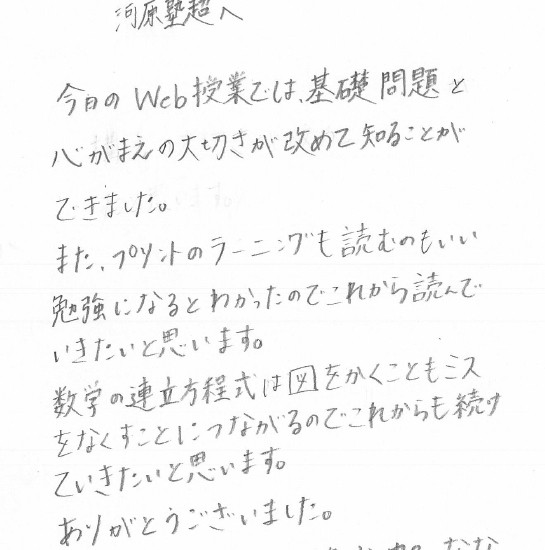 河原塾超へ
今日のWeb授業では、基礎問題と
心がまえの大切さが改めて知ることが
できました。
また、プリントのラーニングも読むのもいい
勉強になるとわかったのでこれから読んで
いきたいと思います。
数学の連立方程式は図をかくこともミス
をなくすことにつながるのでこれからも続け
ていきたいと思います。
ありがとうございました。